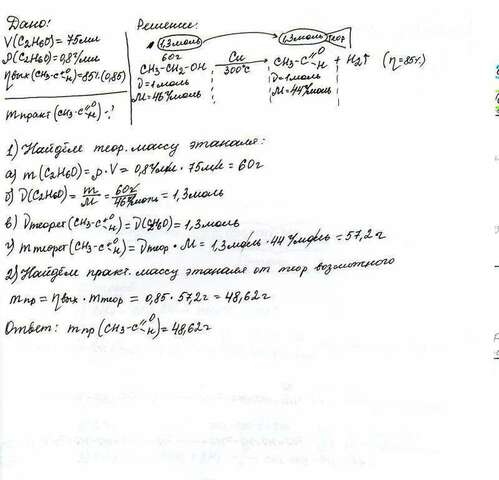 Дано:
V(C2H6O) = 75мл
ρ(C2H6O) = 0,8г/мл
ηвых(CH3-C=O H) = 85% (0,85)
mпракт(CH3-C=O H) - ?
Решение:
1,3моль 1,3моль теор
60г
CH3-CH2-OH Cu 300°C CH3-C=O H + H2↑ (η=85%)
ν=1моль ν=1моль
M=46г/моль M=44г/моль
1) Найдём теор. массу этаналя:
а) m(C2H6O) = ρ · V = 0,8г/мл · 75мл = 60г
б) ν(C2H6O) = m/M = 60г/46г/моль = 1,3моль
в) νтеорет(CH3-C=O H) = ν(C2H6O) = 1,3моль
г) mтеорет(CH3-C=O H) = νтеор · M = 1,3моль · 44г/моль = 57,2г
2) Найдём практ. массу этаналя от теор возможного
mпр = ηвых · mтеор = 0,85 · 57,2г = 48,62г
Ответ: mпр(CH3-C=O H) = 48,62г